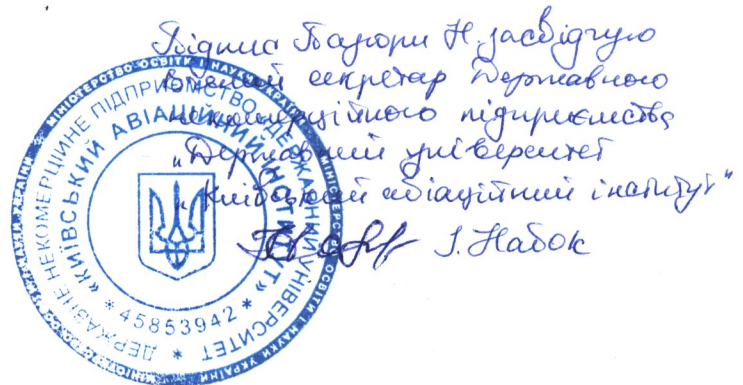 Підпис Базюри Н. засвідчую
Вчений секретар Державного
некомерційного підприємства
„Державний університет
„Київський авіаційний інститут"
І. Набок
МІНІСТЕРСТВО ОСВІТИ І НАУКИ УКРАЇНИ * МІНІСТЕРСТВО ОСВІТИ І НАУКИ УКРАЇНИ *
ДЕРЖАВНЕ НЕКОМЕРЦІЙНЕ ПІДПРИЄМСТВО «ДЕРЖАВНИЙ УНІВЕРСИТЕТ *
«КИЇВСЬКИЙ АВІАЦІЙНИЙ ІНСТИТУТ»
* 45853942 *